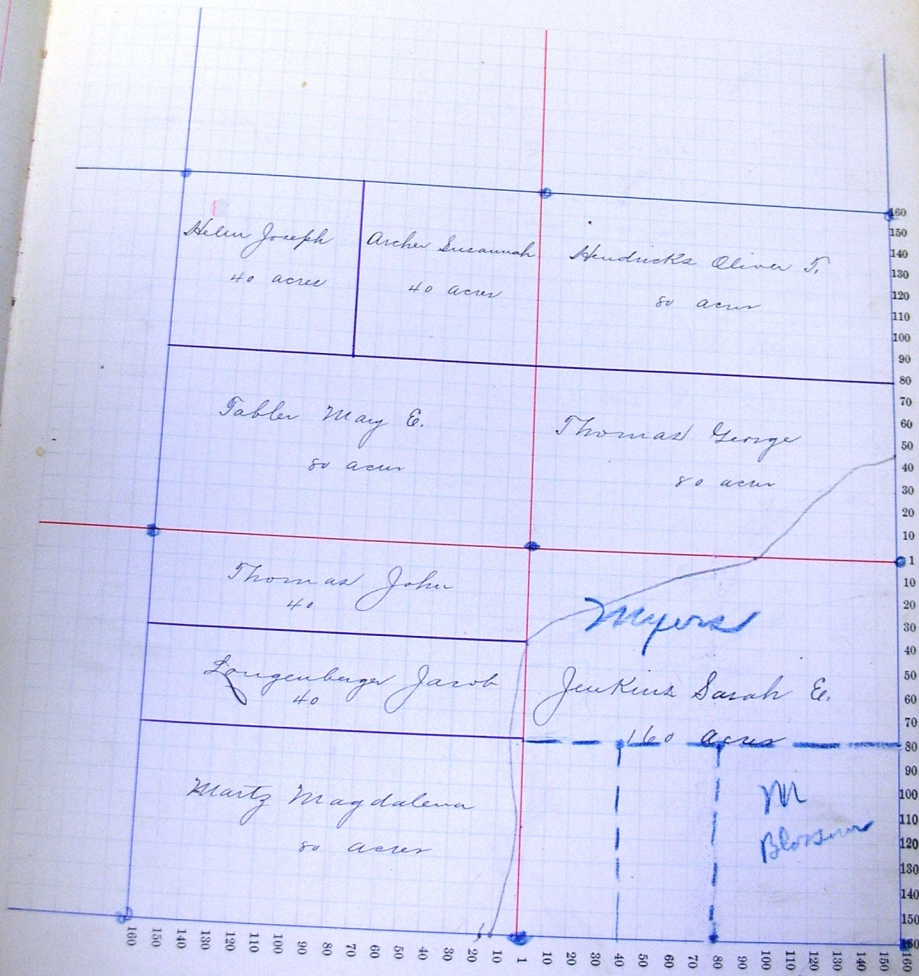 Helen Joseph
40 acres
Archer Susannah
40 acres
Hendricks Oliver T.
80 acres
Tabler May E.
80 acres
Thomas George
80 acres
Thomas John
40
Longenberger Jacob
40
Myers
Jenkins Sarah E.
160 acres
Martz Magdalena
80 acres
M
Blossom
160
150
140
130
120
110
100
90
80
70
60
50
40
30
20
10
1
10
20
30
40
50
60
70
80
90
100
110
120
130
140
150
160
160 150 140 130 120 110 100 90 80 70 60 50 40 30 20 10 1 10 20 30 40 50 60 70 80 90 100 110 120 130 140 150 160